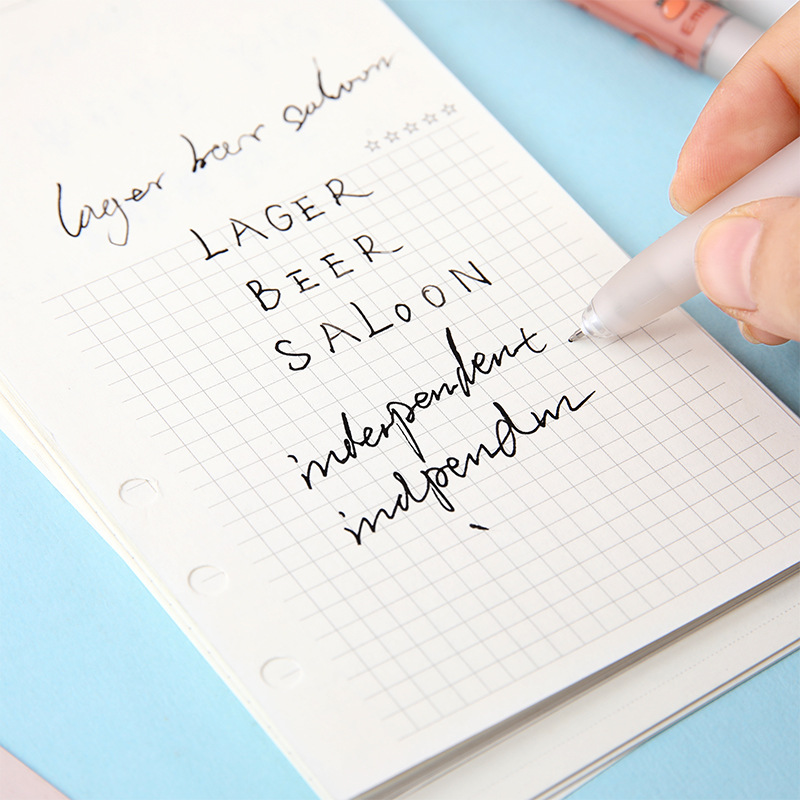 lager beer saloon
LAGER
BEER
SALOON
independent
indpendm